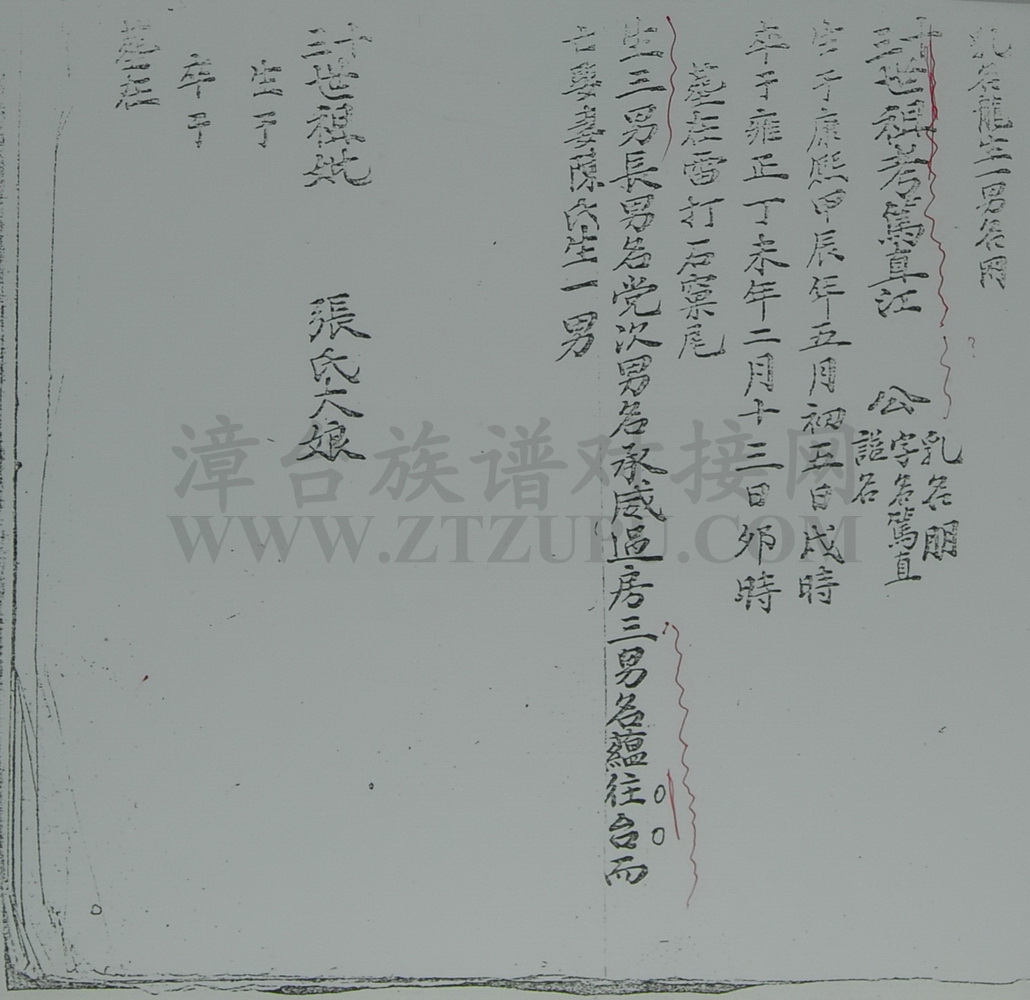 乳名龍生一男名因
十三世祖考篤直江 公
乳名朋
字名篤直
諡名
生于康熙甲辰年五月初五日戌時
卒于雍正丁未年二月十三日卯時
墓在雷打石窠尾
生三男長男名党次男名承咸過房三男名蘊往台而
亡娶妻陳氏生一男
十三世祖妣 張氏大娘
生于
卒于
墓在
漳台族谱对接网
WWW.ZTZUPU.COM